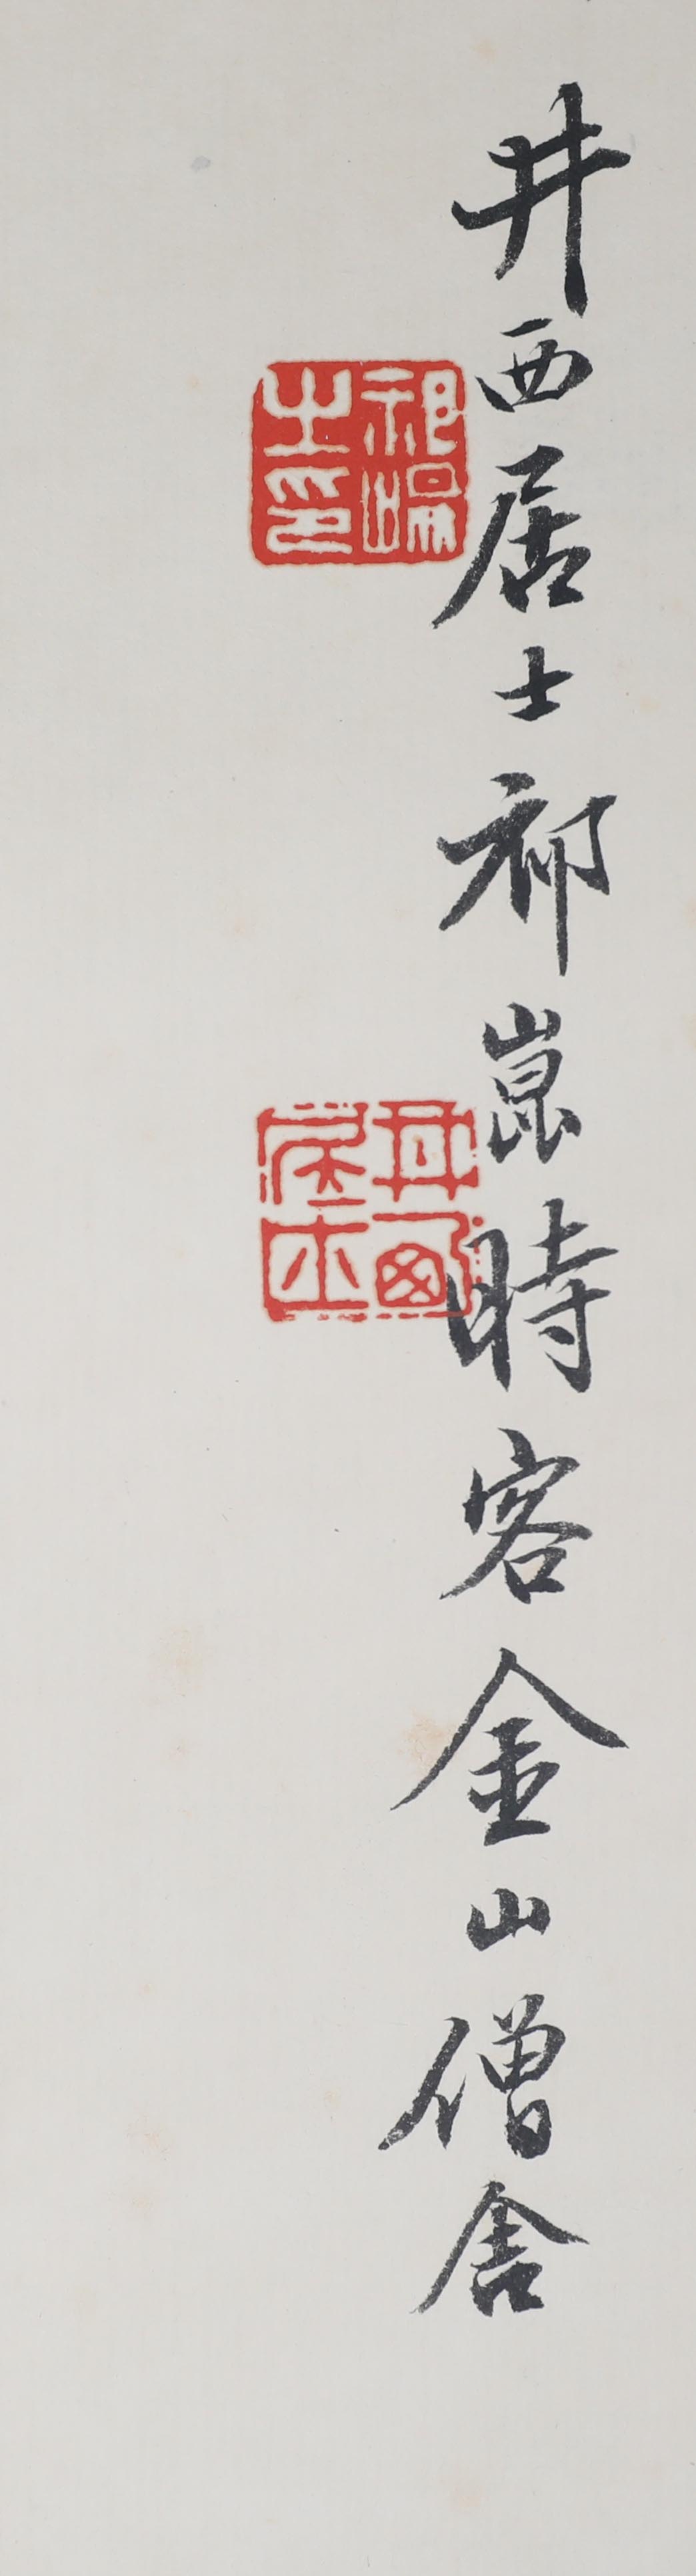 井西居士祁崑時客金山僧舍
祁崑之印
井西居士